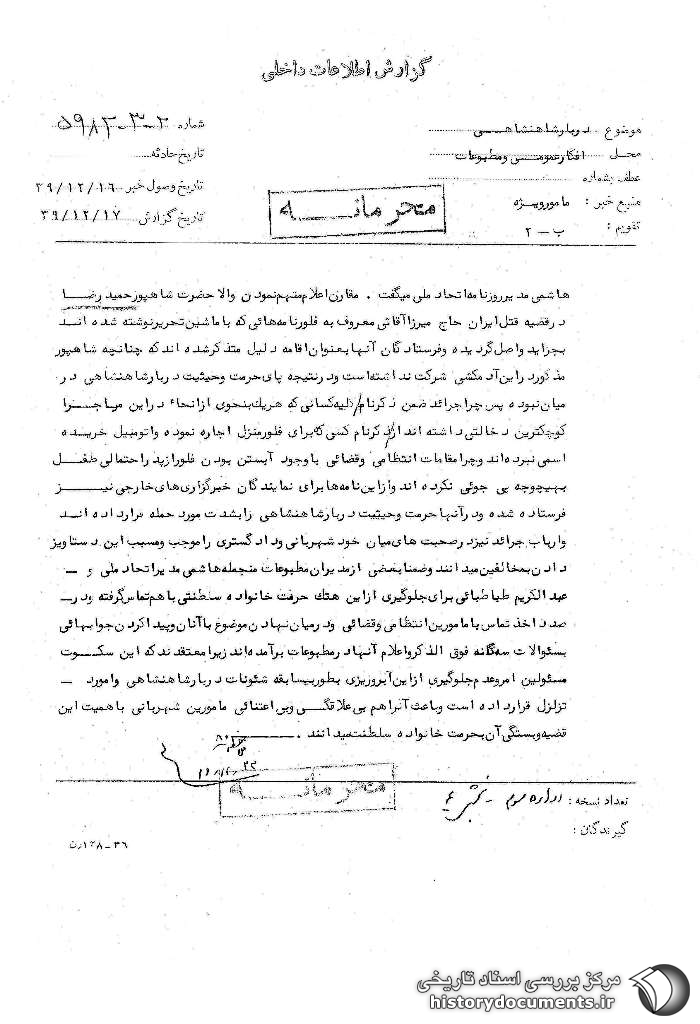 گزارش اطلاعات داخلی
موضوع : دربارشاهنشاهـــی
محل : افکارعمومـــی ومطبوعات
عطف بشماره
منبع خبر : مامورویژه
تقویم : ب – ۲
شماره ۲-۳-۵۹۸۲
تاریخ حادثه
تاریخ وصول خبر ۳۹/۱۲/۱۶
تاریخ گزارش ۳۹/۱۲/۱۷
محرمانـــه
هاشمی مدیرروزنامه اتحاد ملی میگفت . مقارن اعلام متهم نمودن والا حضرت شاهپورحمید رضـــا
درقضیه قتل ایران حاج میرزاآقاش معروف به فلورنامه هائی که باماشین تحریرنوشته شده انـد
بجراید واصل گردیده وفرستادگان آنهابعنوان اقامه دلیل متذکرشده اندکه چنانچه شاهپور
مذکوردراین آدمکشی شرکت نداشته است ودرنتیجه پای حرمت وحیثیت دربارشاهنشاهی در
میان نبوده پس چراجرائد ضمن ذکرنام کلیه کسانی که هریک بنحوی ازانحاء دراین ماجـــرا
کوچکترین دخالتی داشته اندازذکرنام کسی که برای فلورمنزل اجاره نموده واتومبیل خریـــده
اسمی نبرده اند وچرامقامات انتظامی وقضائی باوجود آبستن بودن فلورازپدراحتمالی طفـــل
بهیچوجه پی جوئی نکرده اند وازاین نامه هابرای نمایندگان خبرگزاری های خارجی نیـــز
فرستاده شده ودرآنهاحرمت وحیثیت دربارشاهنشاهی رابشدت مورد حمله قرارداده انـــد
وارباب جرائد نیزدرصحبت های میان خود شهربانی ودادگستری راموجب ومسبب این دستاویز
دادن بمخالفین میدانند وضمنابعضی ازمدیران مطبوعات منجمله هاشمی مدیراتحاد ملی و –
عبدالکریم طباطبائی برای جلوگیری ازاین هتك حرمت خانواده سلطنتی باهم تماس گرفته ودرـ
صدد اخذ تماس بامامورین انتظامی وقضائی ودرمیان نهادن موضوع باآنان وپیداکردن جوابهائی
بسئوالات سه گانه فوق الذکرواعلام آنهادرمطبوعات برآمده اند زیرامعتقدندکه این سکـــوت
مسئولین امروعدم جلوگیری ازاین آبروریزی بطوربیسابقه شئونات دربارشاهنشاهی رامورد –
تزلزل قرارداده است وباعث آنراهم بی علاقگـــی وبی اعتنائی مامورین شهربانی باهمیت این
قضیه وبستگی آن بحرمت خانواده سلطنت میدانند .
محرمانـــه
تعداد نسخه : اداره سوم –
گیرندگان :
۳۶–۱۴۸رن
مرکز بررسی اسناد تاریخی
historydocuments.ir